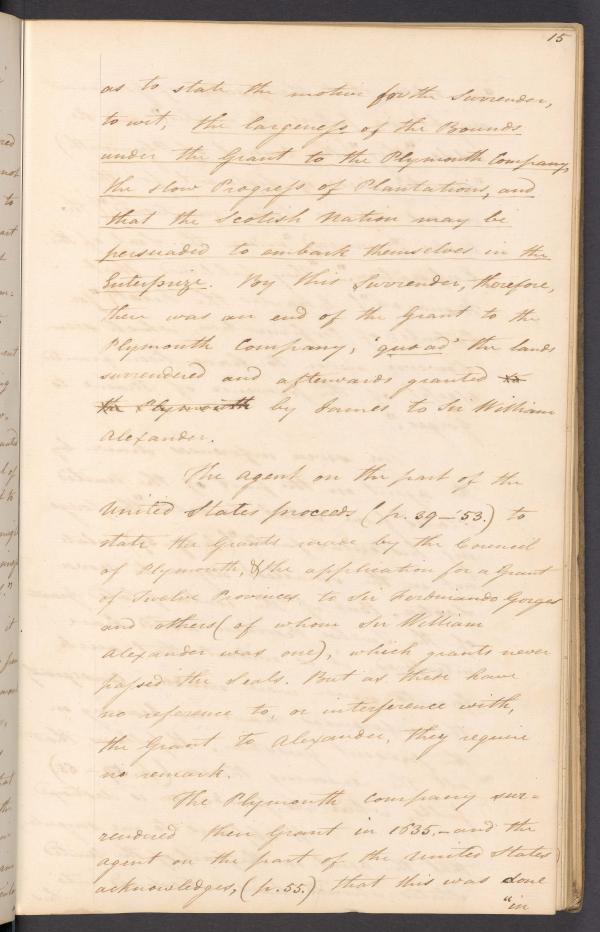 15
as to state the motive for the Surrender,
to wit, the largeness of the Bounds
under the Grant to the Plymouth Company,
the slow Progress of Plantations, and
that the Scotish Nation may be
persuaded to embark themselves in the
Enterprize. By this Surrender, therefore,
there was an end of the Grant to the
Plymouth Company, 'quo ad' the lands
surrendered and afterwards granted to
the Plymouth by James to Sir William
Alexander.
The agent on the part of the
United States proceeds (p. 39–53.) to
state the Grants made by the Council
of Plymouth, & the application for a Grant
of Twelve Provinces to Sir Ferdinando Gorges
and others (of whom Sir William
Alexander was one), which grants never
passed the Seals. But as these have
no reference to, or interference with,
the Grant to Alexander, they require
no remark.
The Plymouth Company sur=
rendered their Grant in 1635,– and the
agent on the part of the United States
acknowledges, (p. 55.) that this was done
"in